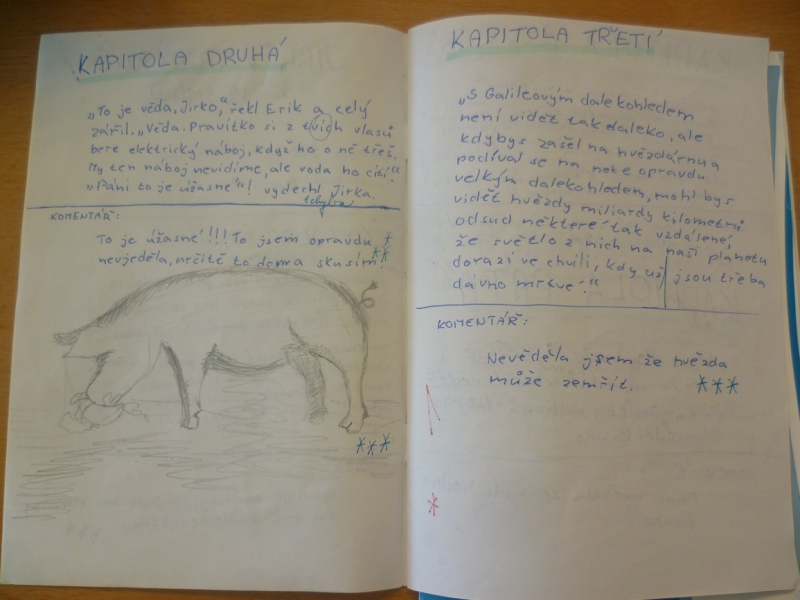 KAPITOLA DRUHÁ
„To je věda, Jirko," řekl Erik a celý
zářil. „Věda. Pravítko si z tvích vlasů
bere elektrický náboj, když ho o ně třeš.
My ten náboj nevidíme, ale voda ho cítí!"
„Páni to je úžasné"! vydechl Jirka.
KOMENTÁŘ:
To je úžasné!!! To jsem opravdu
nevjeděla, určitě to doma skusím.
KAPITOLA TŘETÍ
„S Galileovým dalekohledem
není vidět tak daleko, ale
kdybys zašel na hvězdárnu a
podíval se na nebe opravdu
velkým dalekohledem, mohl bys
vidět hvězdy miliardy kilometrů
odsud některé tak vzdálené,
že světlo z nich na naši planetu
dorazí ve chvíli, kdy už jsou třeba
dávno mrtvé!"
KOMENTÁŘ:
Nevěděla jsem že hvězda
může zemřít.